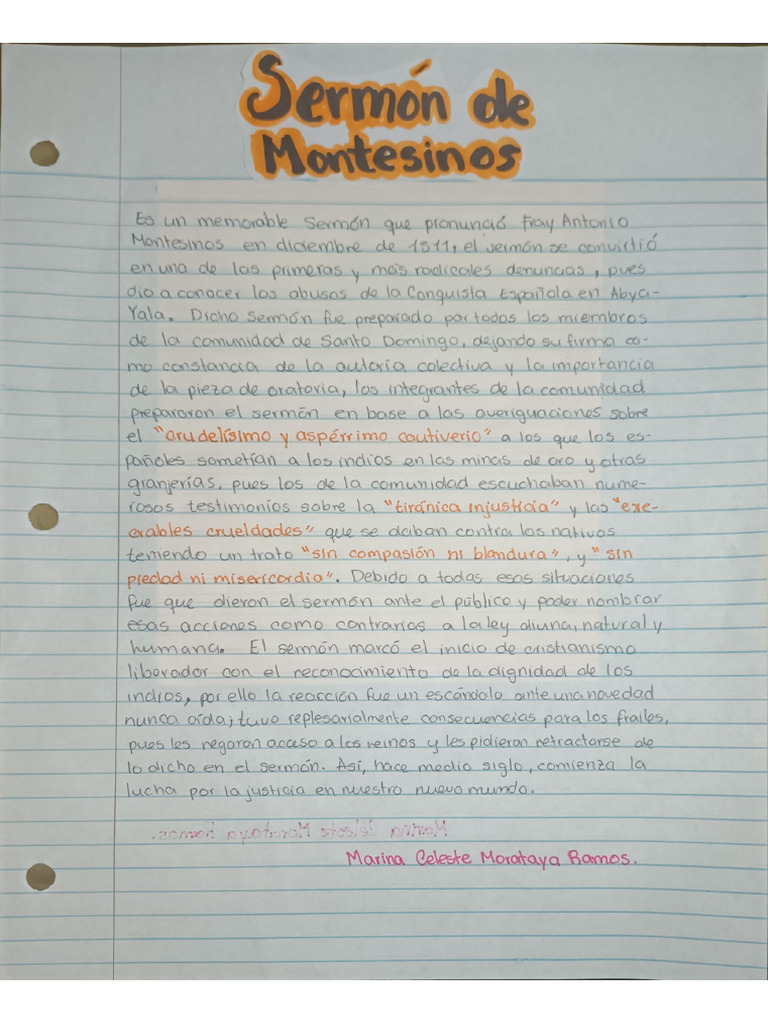 Sermón de
Montesinos
Es un memorable Sermón que pronunció Fray Antonio
Montesinos en diciembre de 1511, el sermón se convirtió
en una de las primeras y más radicales denuncias, pues
dio a conocer los abusos de la Conquista Española en Abya-
Yala. Dicho Sermón fue preparado por todos los miembros
de la comunidad de Santo Domingo, dejando su firma co-
mo constancia de la autoría colectiva y la importancia
de la pieza de oratoria, los integrantes de la comunidad
prepararon el sermón en base a las averiguaciones sobre
el "crudelísimo y aspérrimo cautiverio" a los que los es-
pañoles sometían a los indios en las minas de oro y otras
granjerías, pues los de la comunidad escuchaban nume-
rosos testimonios sobre la "tiránica injusticia" y las "exe-
crables crueldades" que se daban contra los nativos
teniendo un trato "sin compasión ni blandura", y "sin
piedad ni misericordia". Debido a todas esas situaciones
fue que dieron el sermón ante el público y poder nombrar
esas acciones como contrarias a la ley divina, natural y
humana. El sermón marcó el inicio de cristianismo
liberador con el reconocimiento de la dignidad de los
indios, por ello la reacción fue un escándalo ante una novedad
nunca oída; tuvo replesarialmente consecuencias para los frailes,
pues les negaron acceso a los reinos y les pidieron retractarse de
lo dicho en el sermón. Así, hace medio siglo, comienza la
lucha por la justicia en nuestro nuevo mundo.
Marina Celeste Morataya Ramos.